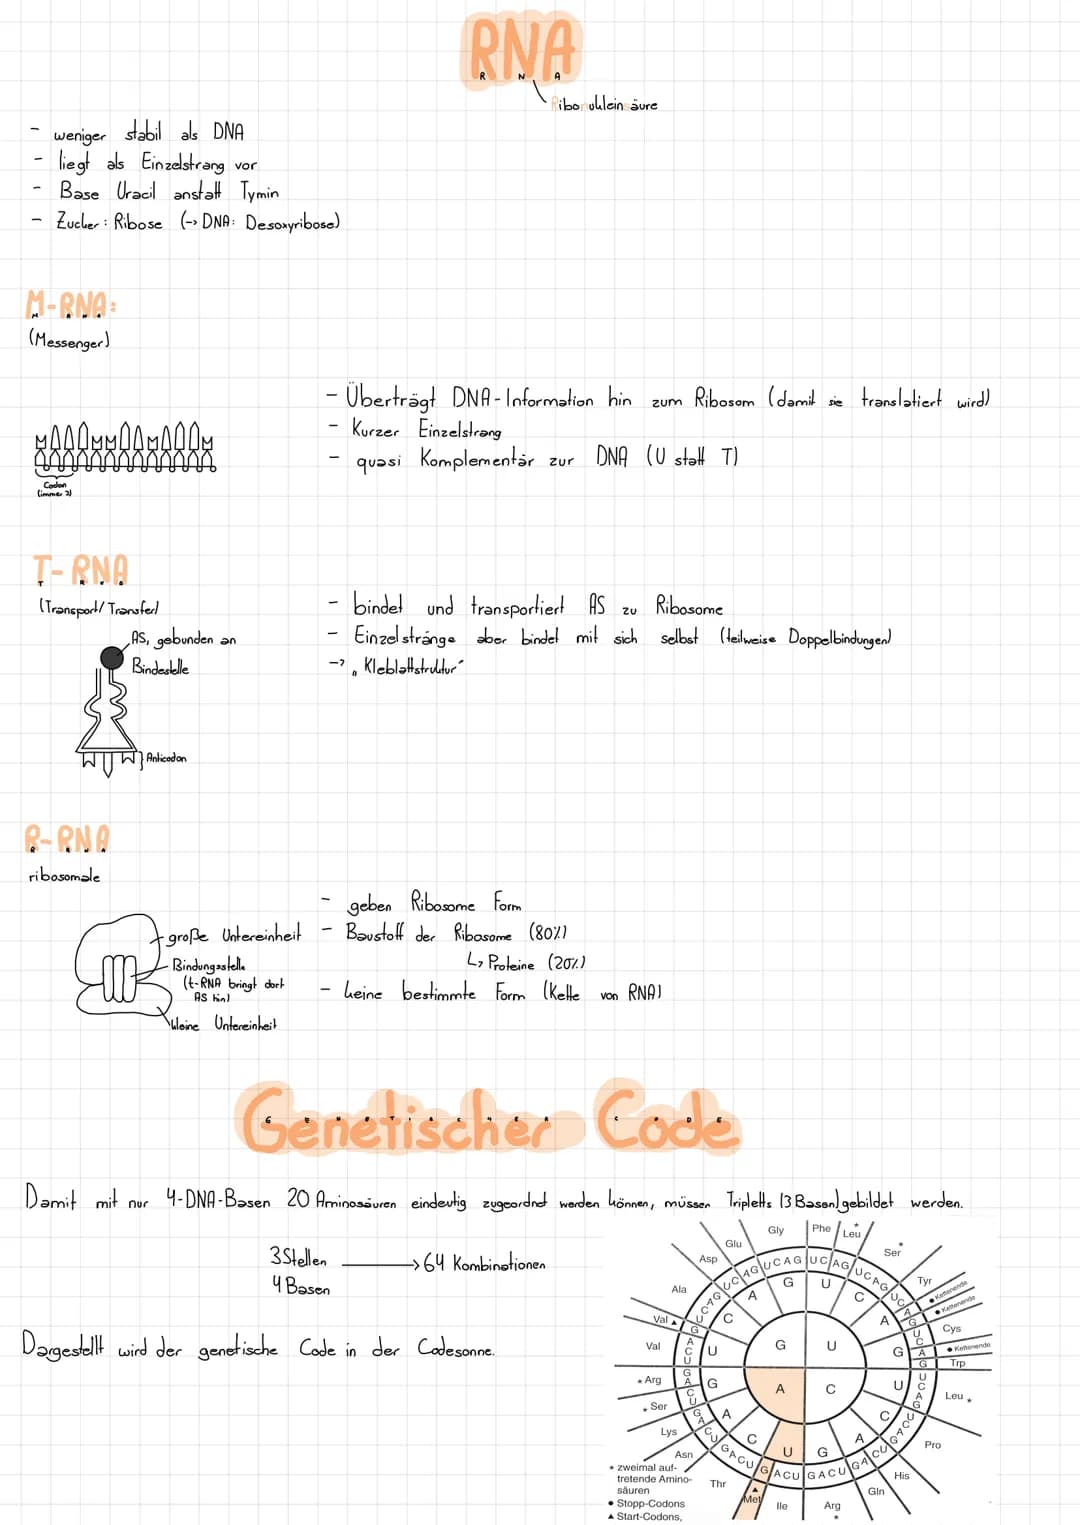 RNA
R N A
Ribonukleinsäure
- weniger stabil als DNA
- liegt als Einzelstrang vor
- Base Uracil anstatt Tymin
- Zucker: Ribose (-> DNA: Desoxyribose)
M-RNA:
(Messenger)
- Überträgt DNA-Information hin zum Ribosom (damit sie translatiert wird)
- Kurzer Einzelstrang
- quasi Komplementär zur DNA (U statt T)
Codon
(immer 3)
T-RNA
(Transport/Transfer)
- bindet und transportiert AS zu Ribosome
- Einzelstränge aber bindet mit sich selbst (teilweise Doppelbindungen)
-> „Kleblattstruktur"
AS, gebunden an
Bindestelle
Anticodon
R-RNA
ribosomale
- geben Ribosome Form
- Baustoff der Ribosome (80%)
↳ Proteine (20%)
- keine bestimmte Form (Kette von RNA)
große Untereinheit
Bindungsstelle
(t-RNA bringt dort
AS hin)
kleine Untereinheit
Genetischer Code
Damit mit nur 4-DNA-Basen 20 Aminosäuren eindeutig zugeordnet werden können, müssen Tripletts (3 Basen) gebildet werden.
3 Stellen
4 Basen
→ 64 Kombinationen
Dargestellt wird der genetische Code in der Codesonne.
Gly
Phe
Leu *
Glu
Ser *
Asp
Tyr
Ala
● Kettenende
● Kettenende
Val ▲
Cys
Val
● Kettenende
Trp
* Arg
Leu *
* Ser
Lys
Pro
Asn
His
Thr
Gln
▲ Met
Ile
Arg *
G U
A C
* zweimal auf-
tretende Amino-
säuren
● Stopp-Codons
▲ Start-Codons,